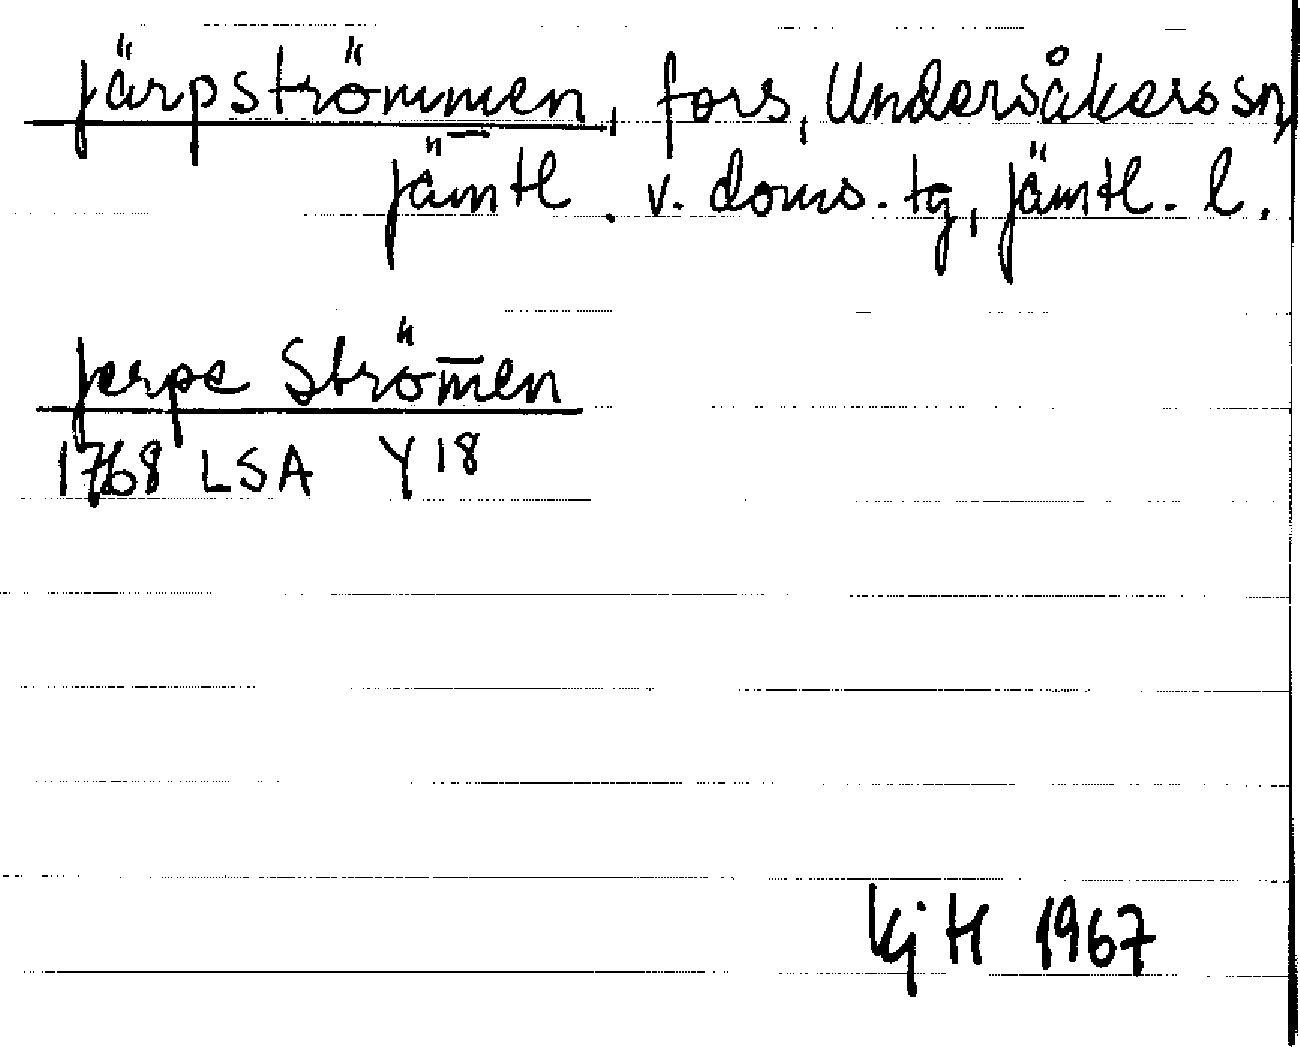 Järpströmmen, fors, Undersåkers sn,
Jämtl. v. doms. tg, Jämtl. l.
Jerpe Ström̄en
1768 LSA Y 18
KjH 1967